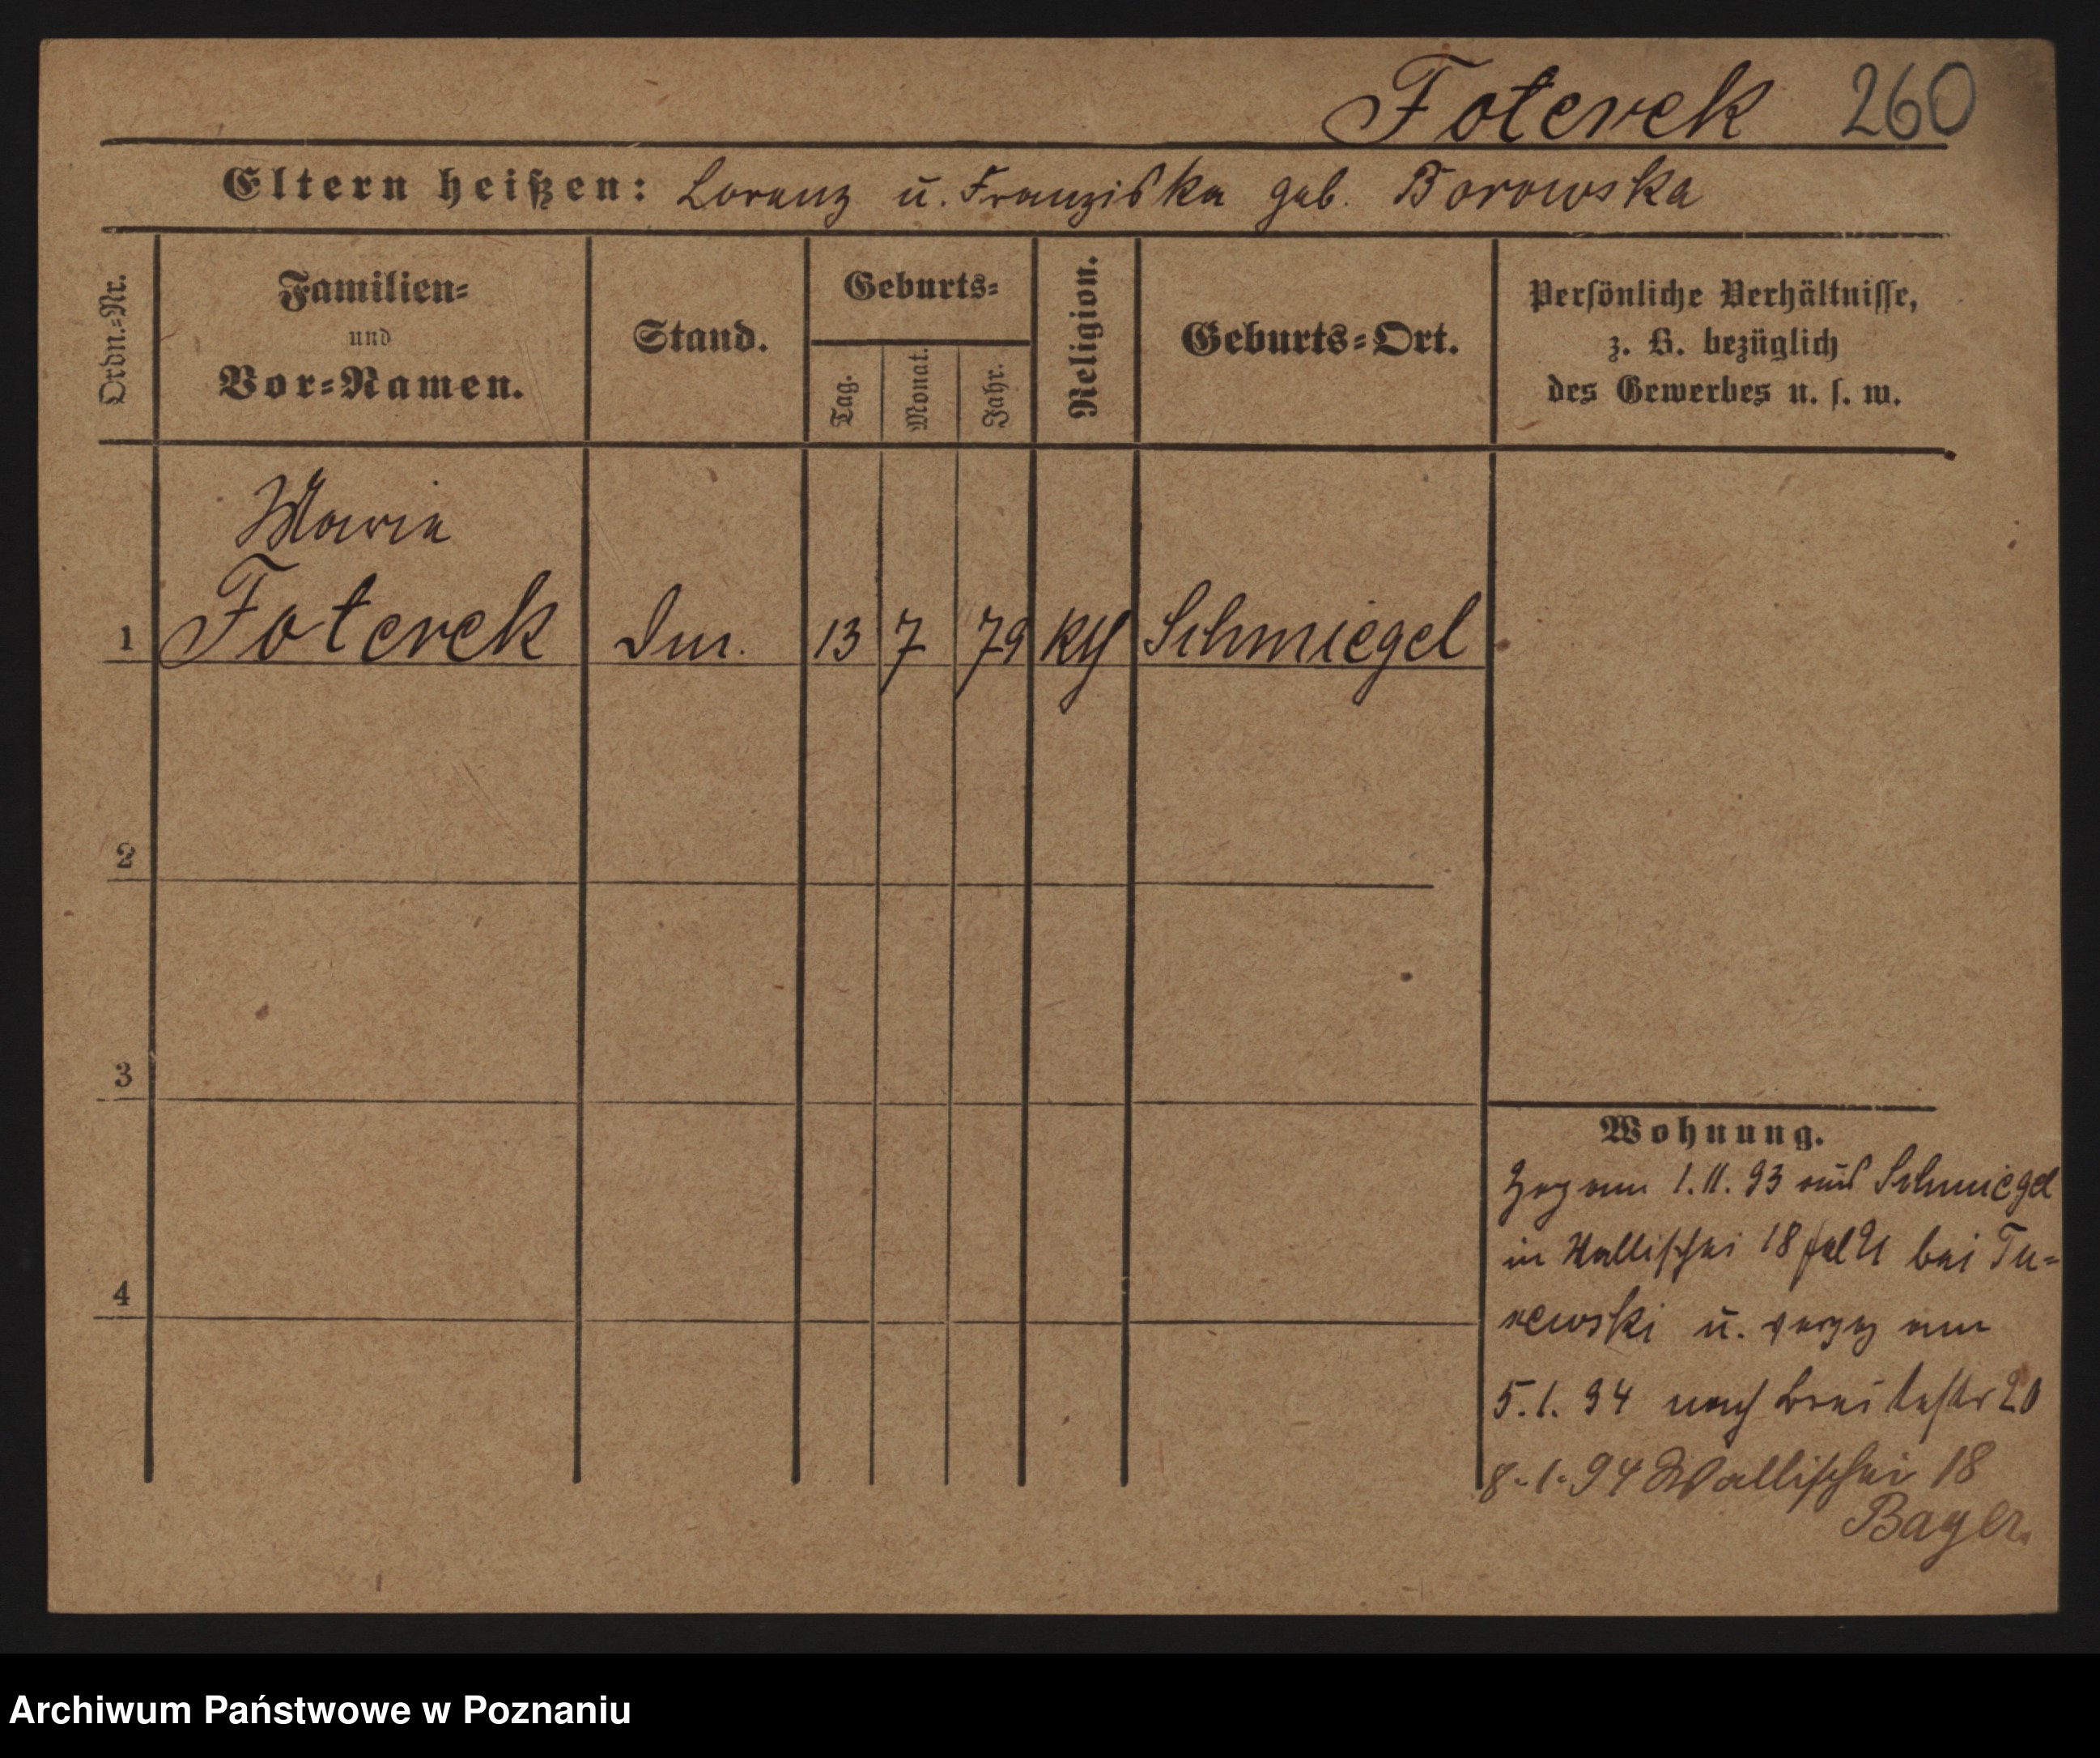 Foterek 260
Eltern heißen: Lorenz u. Franziska geb. Borowska
Ordn.-Nr.
Familien-
und
Vor-Namen.
Stand.
Geburts-
Tag.
Monat.
Jahr.
Religion.
Geburts-Ort.
Persönliche Verhältnisse,
z. B. bezüglich
des Gewerbes u. s. w.
Maria
1 Foterek 13 7 79 kth Schmiegel
2
3
4
Wohnung.
Zog am 1.11.93 aus Schmiegel
in Wallischei 18 bei Tu-
rewski u. verzog am
5.1.94 nach Breitestr 20
8.1.94 Wallischei 18
Bayer.
Archiwum Państwowe w Poznaniu